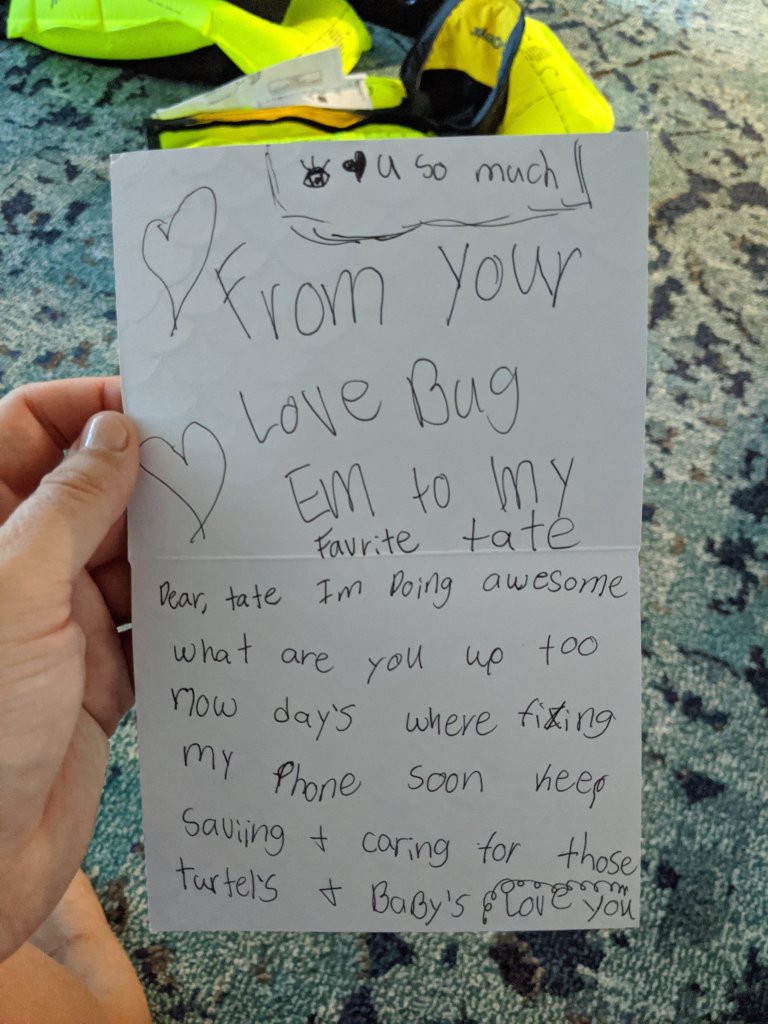 👁 ♥ u so much
From your
Love Bug
Em to my
Favrite tate
Dear, tate Im Doing awesome
what are you up too
now day's where fixing
my Phone soon keep
saviing + caring for those
turtel's + BaBy's Love you